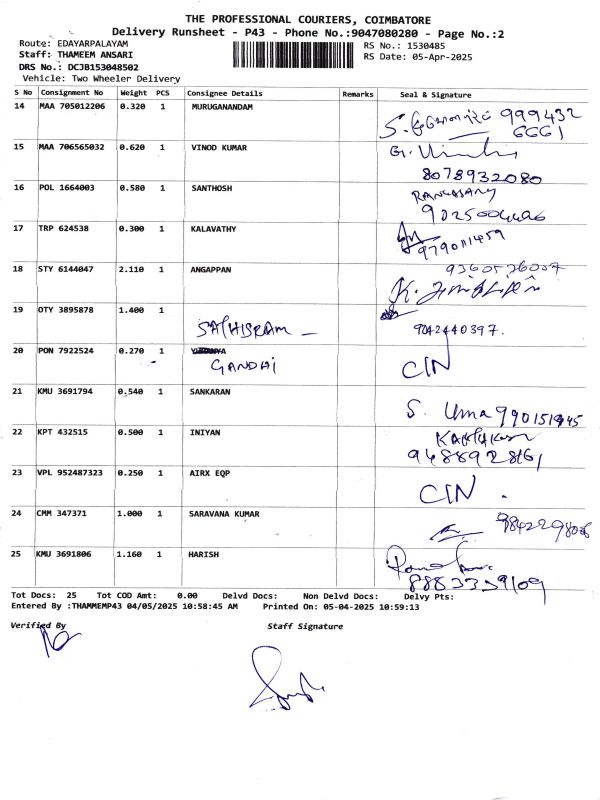 THE PROFESSIONAL COURIERS, COIMBATORE
Delivery Runsheet - P43 - Phone No.:9047080280 - Page No.:2
Route: EDAYARPALAYAM
Staff: THAMEEM ANSARI
DRS No.: DCJB153048502
Vehicle: Two Wheeler Delivery
RS No.: 1530485
RS Date: 05-Apr-2025
S No Consignment No Weight PCS Consignee Details Remarks Seal & Signature
14 MAA 705012206 0.320 1 MURUGANANDAM 999432
6661
15 MAA 706565032 0.620 1 VINOD KUMAR
8078932080
16 POL 1664003 0.580 1 SANTHOSH RANGASAMY
17 TRP 624538 0.300 1 KALAVATHY
9790111459
18 STY 6144047 2.110 1 ANGAPPAN
19 OTY 3895878 1.400 1
SATHISRAM — 9042440397.
20 PON 7922524 0.270 1
GANDHI CIN
21 KMU 3691794 0.540 1 SANKARAN
S. Uma
22 KPT 432515 0.500 1 INIYAN
9488928161
23 VPL 952487323 0.250 1 AIRX EQP
CIN .
24 CMM 347371 1.000 1 SARAVANA KUMAR
25 KMU 3691806 1.160 1 HARISH
8883359109
Tot Docs: 25 Tot COD Amt: 0.00 Delvd Docs: Non Delvd Docs: Delvy Pts:
Entered By :THAMMEMP43 04/05/2025 10:58:45 AM Printed On: 05-04-2025 10:59:13
Verified By Staff Signature